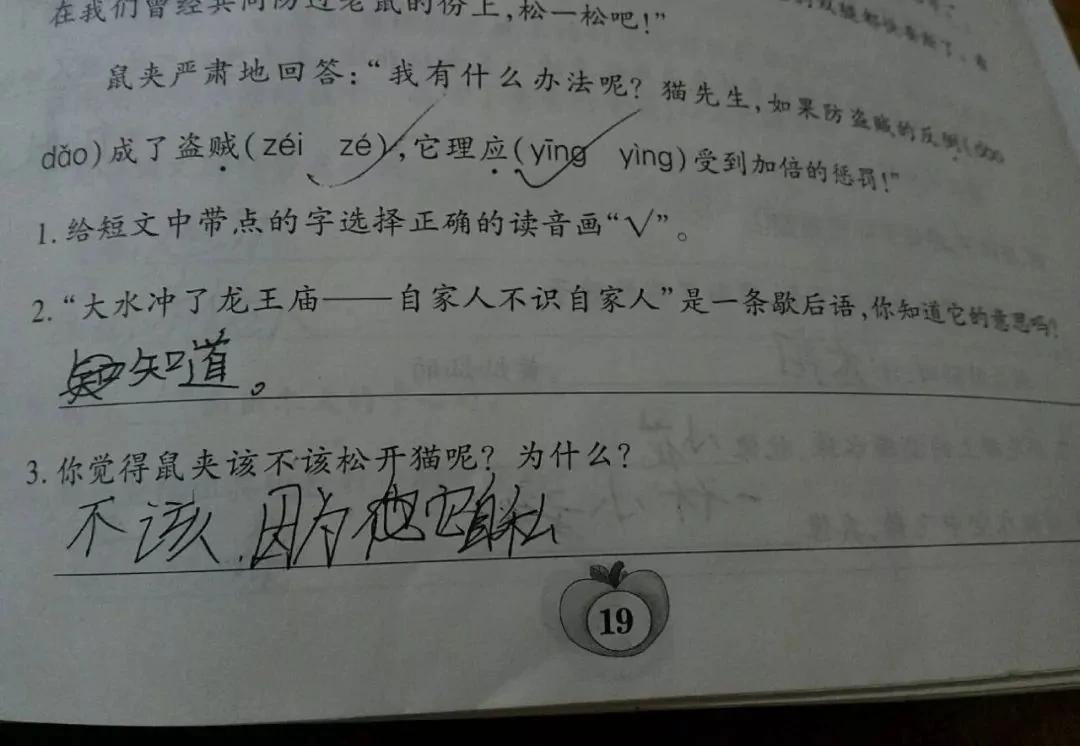 在我们曾经共同防过老鼠的份上,松一松吧!”
鼠夹严肃地回答:“我有什么办法呢?猫先生,如果防盗贼的反倒(
dǎo)成了盗贼(zéi zé),它理应(yīng yìng)受到加倍的惩罚!”
1.给短文中带点的字选择正确的读音画“√”。
2.“大水冲了龙王庙——自家人不识自家人”是一条歇后语,你知道它的意思吗?
知道。
3.你觉得鼠夹该不该松开猫呢?为什么?
不该,因为它自私
19